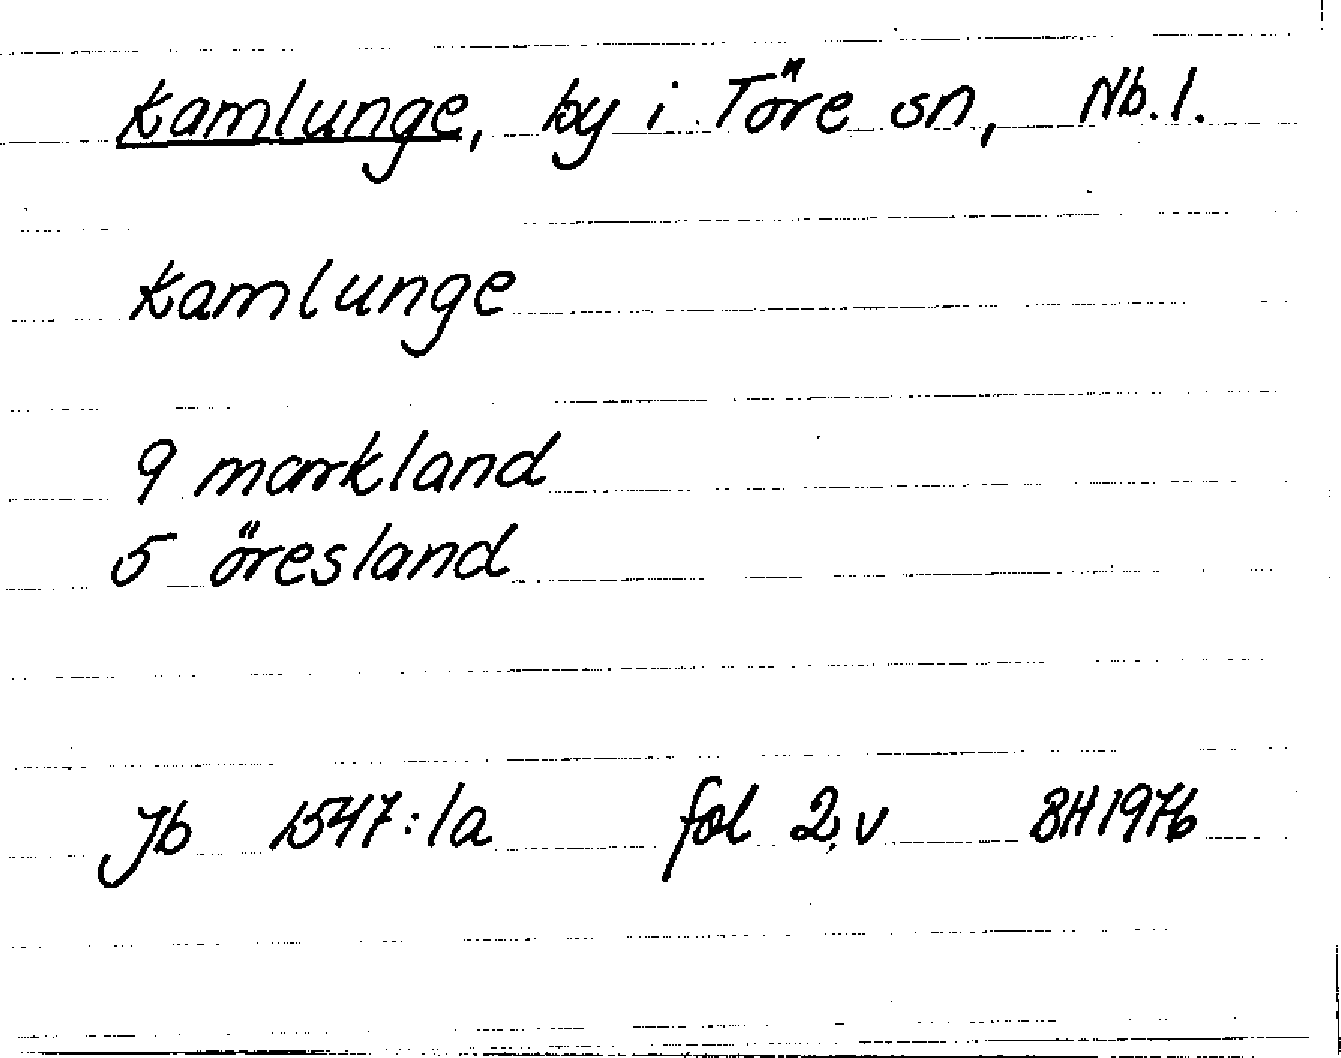 Kamlunge, by i Töre sn, Nb.l.
Kamlunge
9 markland
5 öresland
Jb 1547:1a fol 2,v BH1976